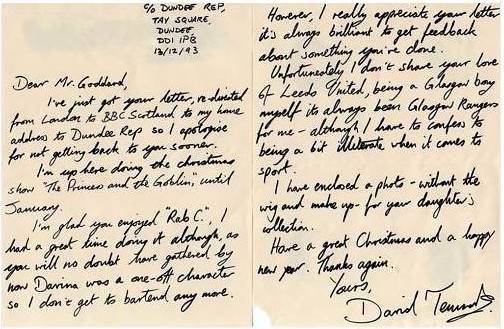 c/o DUNDEE REP,
TAY SQUARE,
DUNDEE
DD1 1PB
13/12/93
Dear Mr. Goddard,
I've just got your letter, re-directed
from London to BBC Scotland to my home
address to Dundee Rep so I apologise
for not getting back to you sooner.
I'm up here doing the christmas
show "The Princess and the Goblin", until
January.
I'm glad you enjoyed "Rab C.", I
had a great time doing it although, as
you will no doubt have gathered by
now Davina was a one-off character
so I don't get to bartend any more.
However, I really appreciate your letter
it's always brilliant to get feedback
about something you've done.
Unfortunately I don't share your love
of Leeds United, being a Glasgow boy
myself its always been Glasgow Rangers
for me - although I have to confess to
being a bit illiterate when it comes to
sport.
I have enclosed a photo - without the
wig and make up - for your daughter's
collection.
Have a great Christmas and a happy
new year. Thanks again.
Yours,
David Tennant